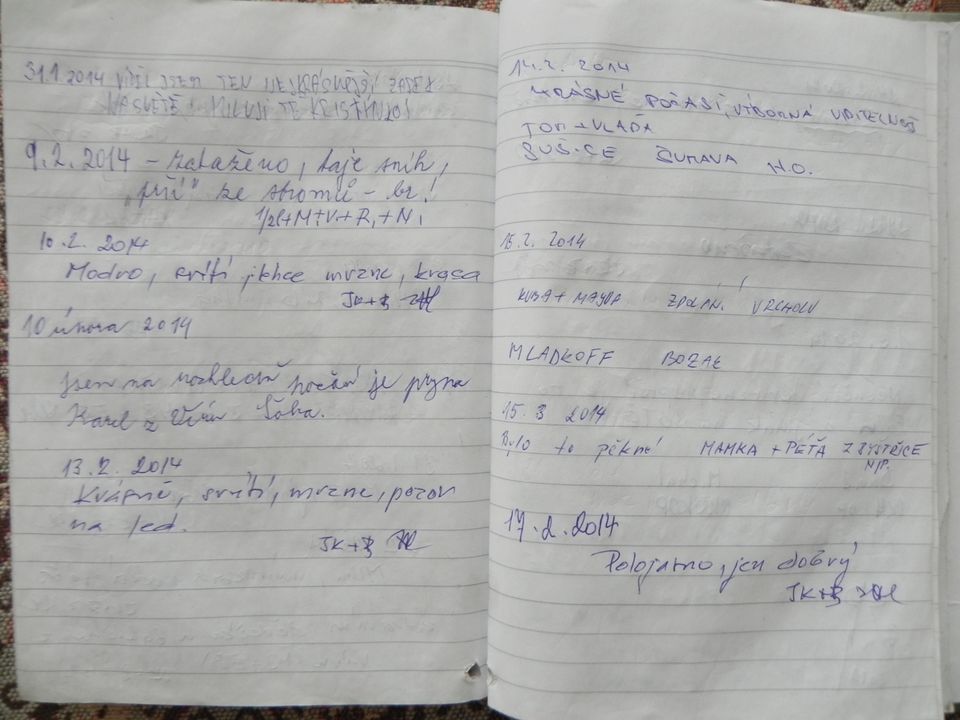 31.1.2014 VIDĚL JSEM TEN NEJKRÁSNĚJŠÍ ZADEK
NA SVĚTĚ! MILUJI TĚ KRISTÝNKO!
9.2. 2014 - zataženo, taje sníh,
„prší" ze stromů - br!
+M+V+R,+N,
10.2. 2014
Modro, svítí, lehce mrzne, krása
JK+
10 února 2014
Jsem na rozhledně počásí je
Karel z
13.2. 2014
Krásně, svítí, mrzne, pozor
na led.
JK+
14.2. 2014
KRÁSNÉ POČASÍ, VÝBORNÁ VIDITELNOST
TOM+VLAĎA
SUŠICE ŠUMAVA N.O.
15.2. 2014
KUBA + MAJDA ZDOLÁNÍ VRCHOLU
MLADKOFF
15. 3 2014
Bylo to pěkné MAMKA + PÉŤA Z BYSTŘICE
N/P.
17.2.2014
Polojasno, jen dobrý
JK+